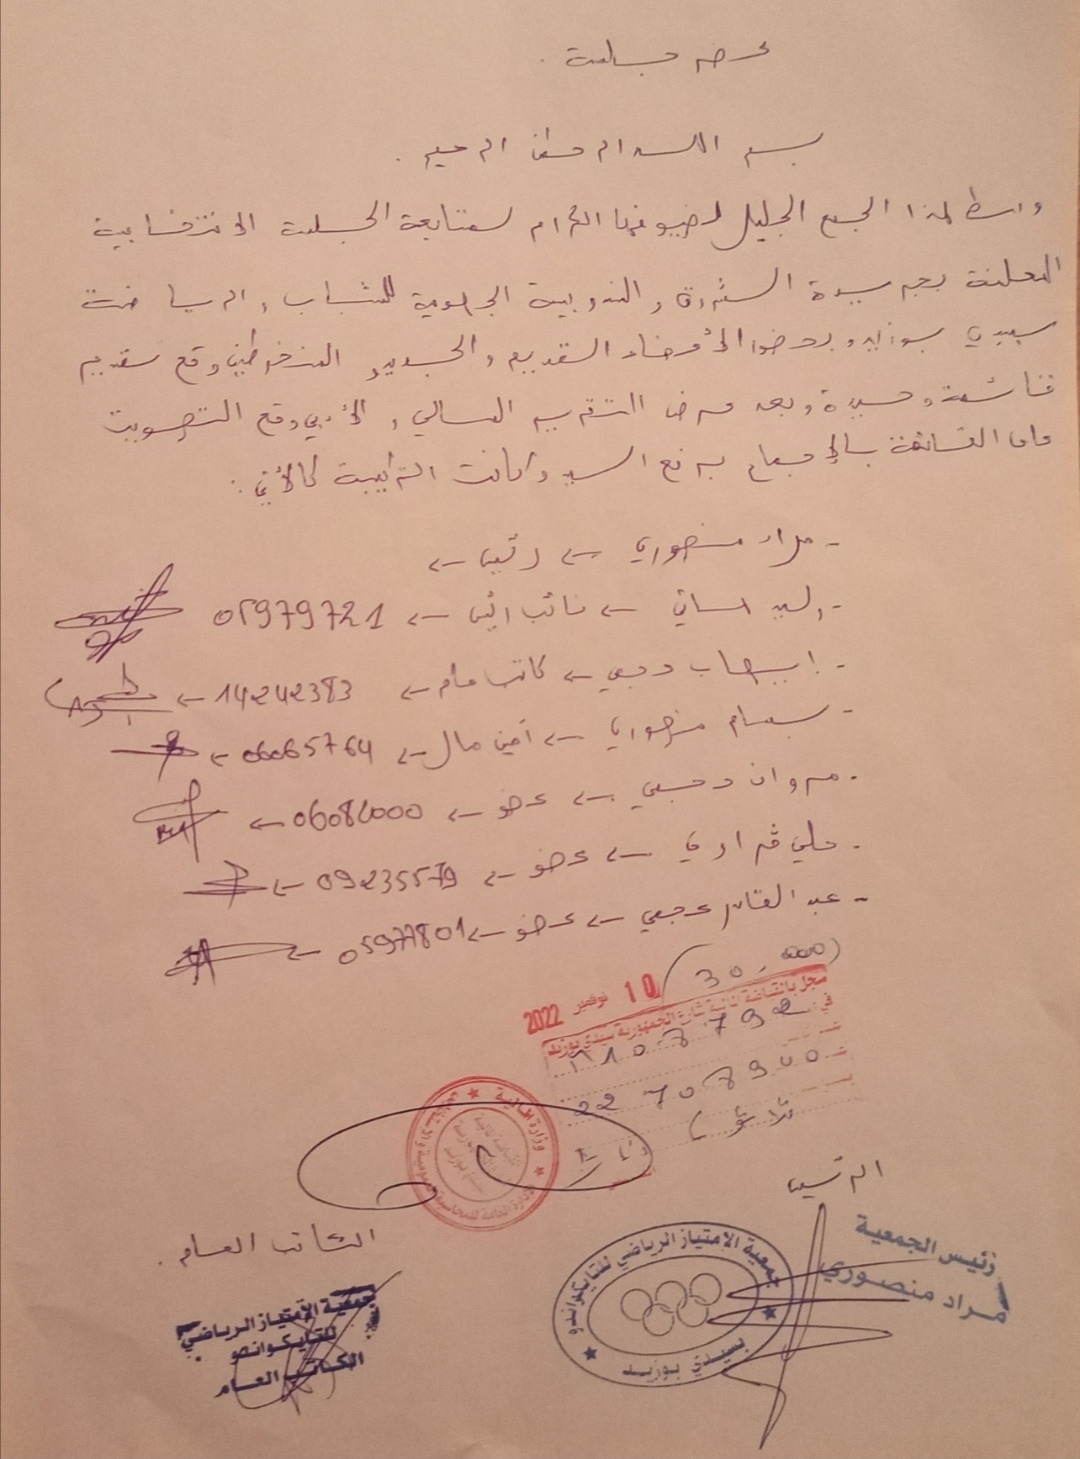 محضر جلسة.
بسم الله الرحمن الرحيم.
وسط هذا الجمع الجليل لضيوفنا الكرام لمتابعة الجلسة الانتخابية
المعلنة بجريدة الشروق والمندوبية الجهوية للشباب والرياضة
بسيدي بوزيد وبحضور الأعضاء القديم والجديد المنخرطين وقع تقديم
قائمة وحيدة وبعد عرض التقرير المالي والأدبي وقع التصويت
على القائمة بالإجماع برفع اليد وكانت التركيبة كالآتي:
- مراد منصوري ← رئيس ←
- السيد ← نائب رئيس ← 05979721
- إيهاب ← كاتب عام ← 14242383 ←
- بسام منصوري ← أمين مال ← 06065764 ←
- مروان ← عضو ← 06082000 ←
- علي ← عضو ← 09235579 ←
- عبد القادر ← عضو ← 05977801 ←
(30,000)
10 نوفمبر 2022
سجل بالقباضة المالية شارع الجمهورية سيدي بوزيد
في:
وزارة المالية
الرئيس
رئيس الجمعية
مراد منصوري
جمعية الإمتياز الرياضي للتايكواندو
بسيدي بوزيد
الكاتب العام.
جمعية الإمتياز الرياضي
للتايكواندو
الكاتب العام